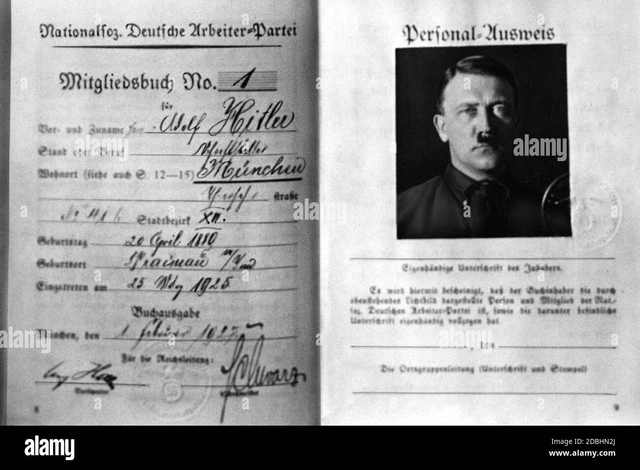 Nationalsoz. Deutsche Arbeiter-Partei
Mitgliedsbuch No. 1
für
Vor- und Zuname Adolf Hitler
Stand oder Beruf
Wohnort (siehe auch S. 12—15) München
straße
Stadtbezirk XII.
Geburtstag 20 April 1889
Geburtsort Braunau
Eingetreten am 1925
Buchausgabe
München, den 1
Für die Reichsleitung:
Schwarz
8
Personal-Ausweis
Eigenhändige Unterschrift des Inhabers.
Es wird hiermit bescheinigt, daß der Buchinhaber die durch
ebenstehendes Lichtbild dargestellte Person und Mitglied der Nat.
soz. Deutschen Arbeiter-Partei ist, sowie die darunter befindliche
Unterschrift eigenhändig vollzogen hat.
Die Ortsgruppenleitung (Unterschrift und Stempel)
9
alamy
Image ID: 2DBHN2J
www.alamy.com